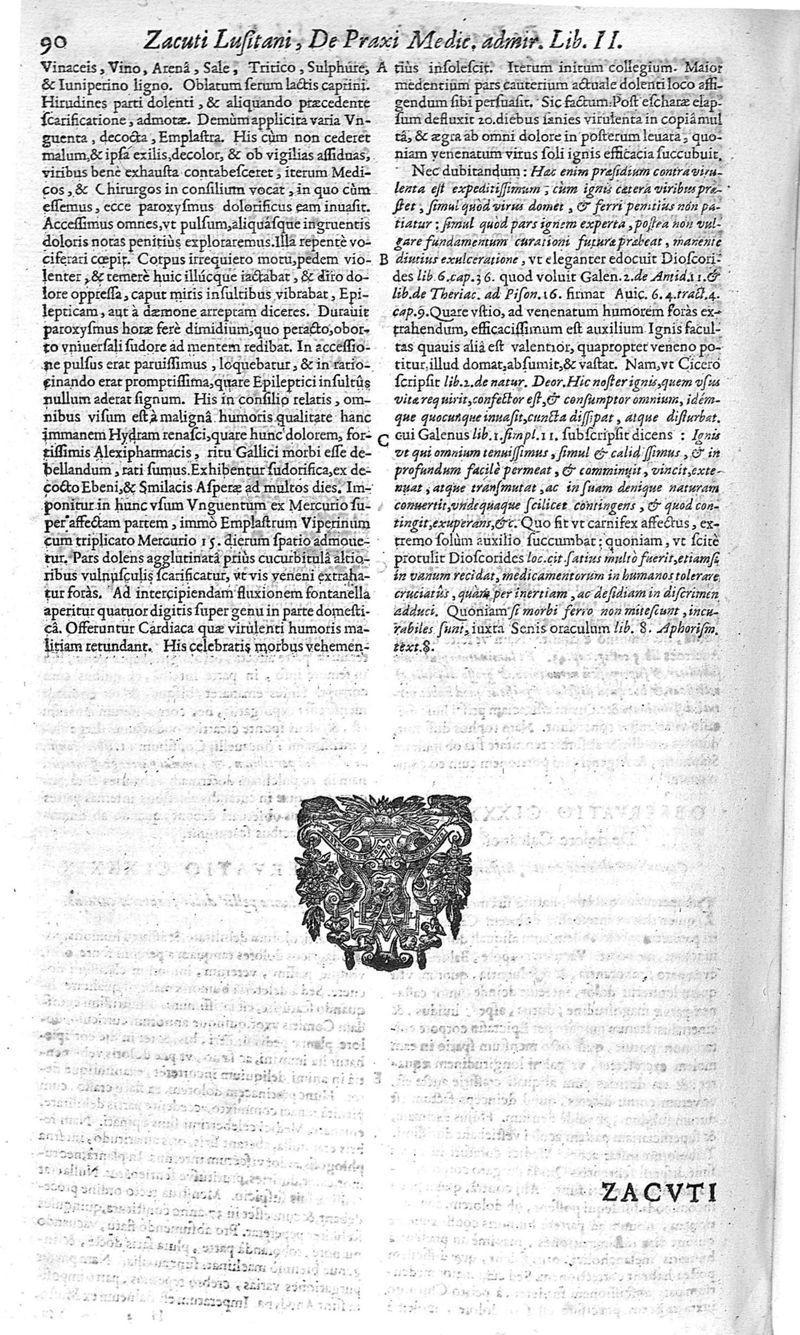 90 Zacuti Lusitani, De Praxi Medic. admir. Lib. II.
Vinaceis, Vino, Arenâ, Sale, Tritico, Sulphure,
& Iuniperino ligno. Oblatum serum lactis caprini.
Hirudines parti dolenti, & aliquando præcedente
scarificatione, admotæ. Demùm applicita varia Vn-
guenta, decocta, Emplastra. His cùm non cederet
malum, & ipsa exilis, decolor, & ob vigilias assiduas,
viribus benè exhausta contabesceret, iterum Medi-
cos, & Chirurgos in consilium vocat, in quo cùm
essemus, ecce paroxysmus dolorificus eam inuasit.
Accessimus omnes, vt pulsum, aliquásque ingruentis
doloris notas penitiùs exploraremus. Illa repentè vo-
ciferari cœpit. Corpus irrequieto motu, pedem vio-
lenter, & temerè huic illúcque iactabat, & diro do-
lore oppressa, caput miris insultibus vibrabat, Epi-
lepticam, aut à dæmone arreptam diceres. Durauit
paroxysmus horæ ferè dimidium, quo peracto, obor-
to vniuersali sudore ad mentem redibat. In accessio-
ne pulsus erat paruissimus, loquebatur, & in ratio-
cinando erat promptissima, quare Epileptici insultûs
nullum aderat signum. His in consilio relatis, om-
nibus visum est à malignâ humoris qualitate hanc
immanem Hydram renasci, quare hunc dolorem, for-
tissimis Alexipharmacis, ritu Gallici morbi esse de-
bellandum, rati sumus. Exhibentur sudorifica, ex de-
cocto Ebeni, & Smilacis Asperæ ad multos dies. Im-
ponitur in hunc vsum Vnguentum ex Mercurio su-
per affectam partem, immò Emplastrum Viperinum
cum triplicato Mercurio 15. dierum spatio admoue-
tur. Pars dolens agglutinatâ priùs cucurbitulâ altio-
ribus vulnusculis scarificatur, vt vis veneni extraha-
tur foràs. Ad intercipiendam fluxionem fontanella
aperitur quatuor digitis super genu in parte domesti-
câ. Offeruntur Cardiaca quæ virulenti humoris ma-
litiam retundant. His celebratis morbus vehemen-
A tiùs insolescit. Iterum initum collegium. Maior
medentium pars cauterium actuale dolenti loco affi-
gendum sibi persuasit. Sic factum. Post escharæ elap-
sum defluxit 20. diebus sanies virulenta in copiâ mul
tâ, & ægra ab omni dolore in posterum leuata, quo-
niam venenatum virus soli ignis efficacia succubuit.
Nec dubitandum: Hæc enim præsidium contra viru-
lenta est expeditissimum; cum ignis cætera viribus præ-
stet, simul quòd virus domet, & ferri penitiùs non pa-
tiatur: simul quod pars ignem experta, postea non vul-
gare fundamentum curationi futuræ præbeat, manente
B diutius exulceratione, vt eleganter edocuit Dioscori-
des lib. 6. cap. 36. quod voluit Galen. 2. de Antid. 11. &
lib. de Theriac. ad Pison. 16. firmat Auic. 6. 4. tract. 4.
cap. 9. Quare vstio, ad venenatum humorem foràs ex-
trahendum, efficacissimum est auxilium Ignis facul-
tas quauis aliâ est valentior, quapropter veneno po-
titur, illud domat, absumit, & vastat. Nam, vt Cicero
scripsit lib. 2. de natur. Deor. Hic noster ignis, quem vsus
vitæ requirit, confector est, & consumptor omnium, idém-
que quocunque inuasit, cuncta dissipat, atque disturbat.
C cui Galenus lib. 1. simpl. 11. subscripsit dicens: Ignis
vt qui omnium tenuissimus, simul & calidissimus, & in
profundum facilè permeat, & comminuit, vincit, exte-
nuat, atque transmutat, ac in suam denique naturam
conuertit, vndequaque scilicet contingens, & quod con-
tingit, exuperans, &c. Quo fit vt carnifex affectus, ex-
tremo solùm auxilio succumbat: quoniam, vt scitè
protulit Dioscorides loc. cit. satius multò fuerit, etiamsi
in vanum recidat, medicamentorum in humanos tolerare
cruciatus, quàm per inertiam, ac desidiam in discrimen
adduci. Quoniam si morbi ferro non mitescunt, incu-
rabiles sunt, iuxta Senis oraculum lib. 8. Aphorism.
text. 8.
ZACVTI